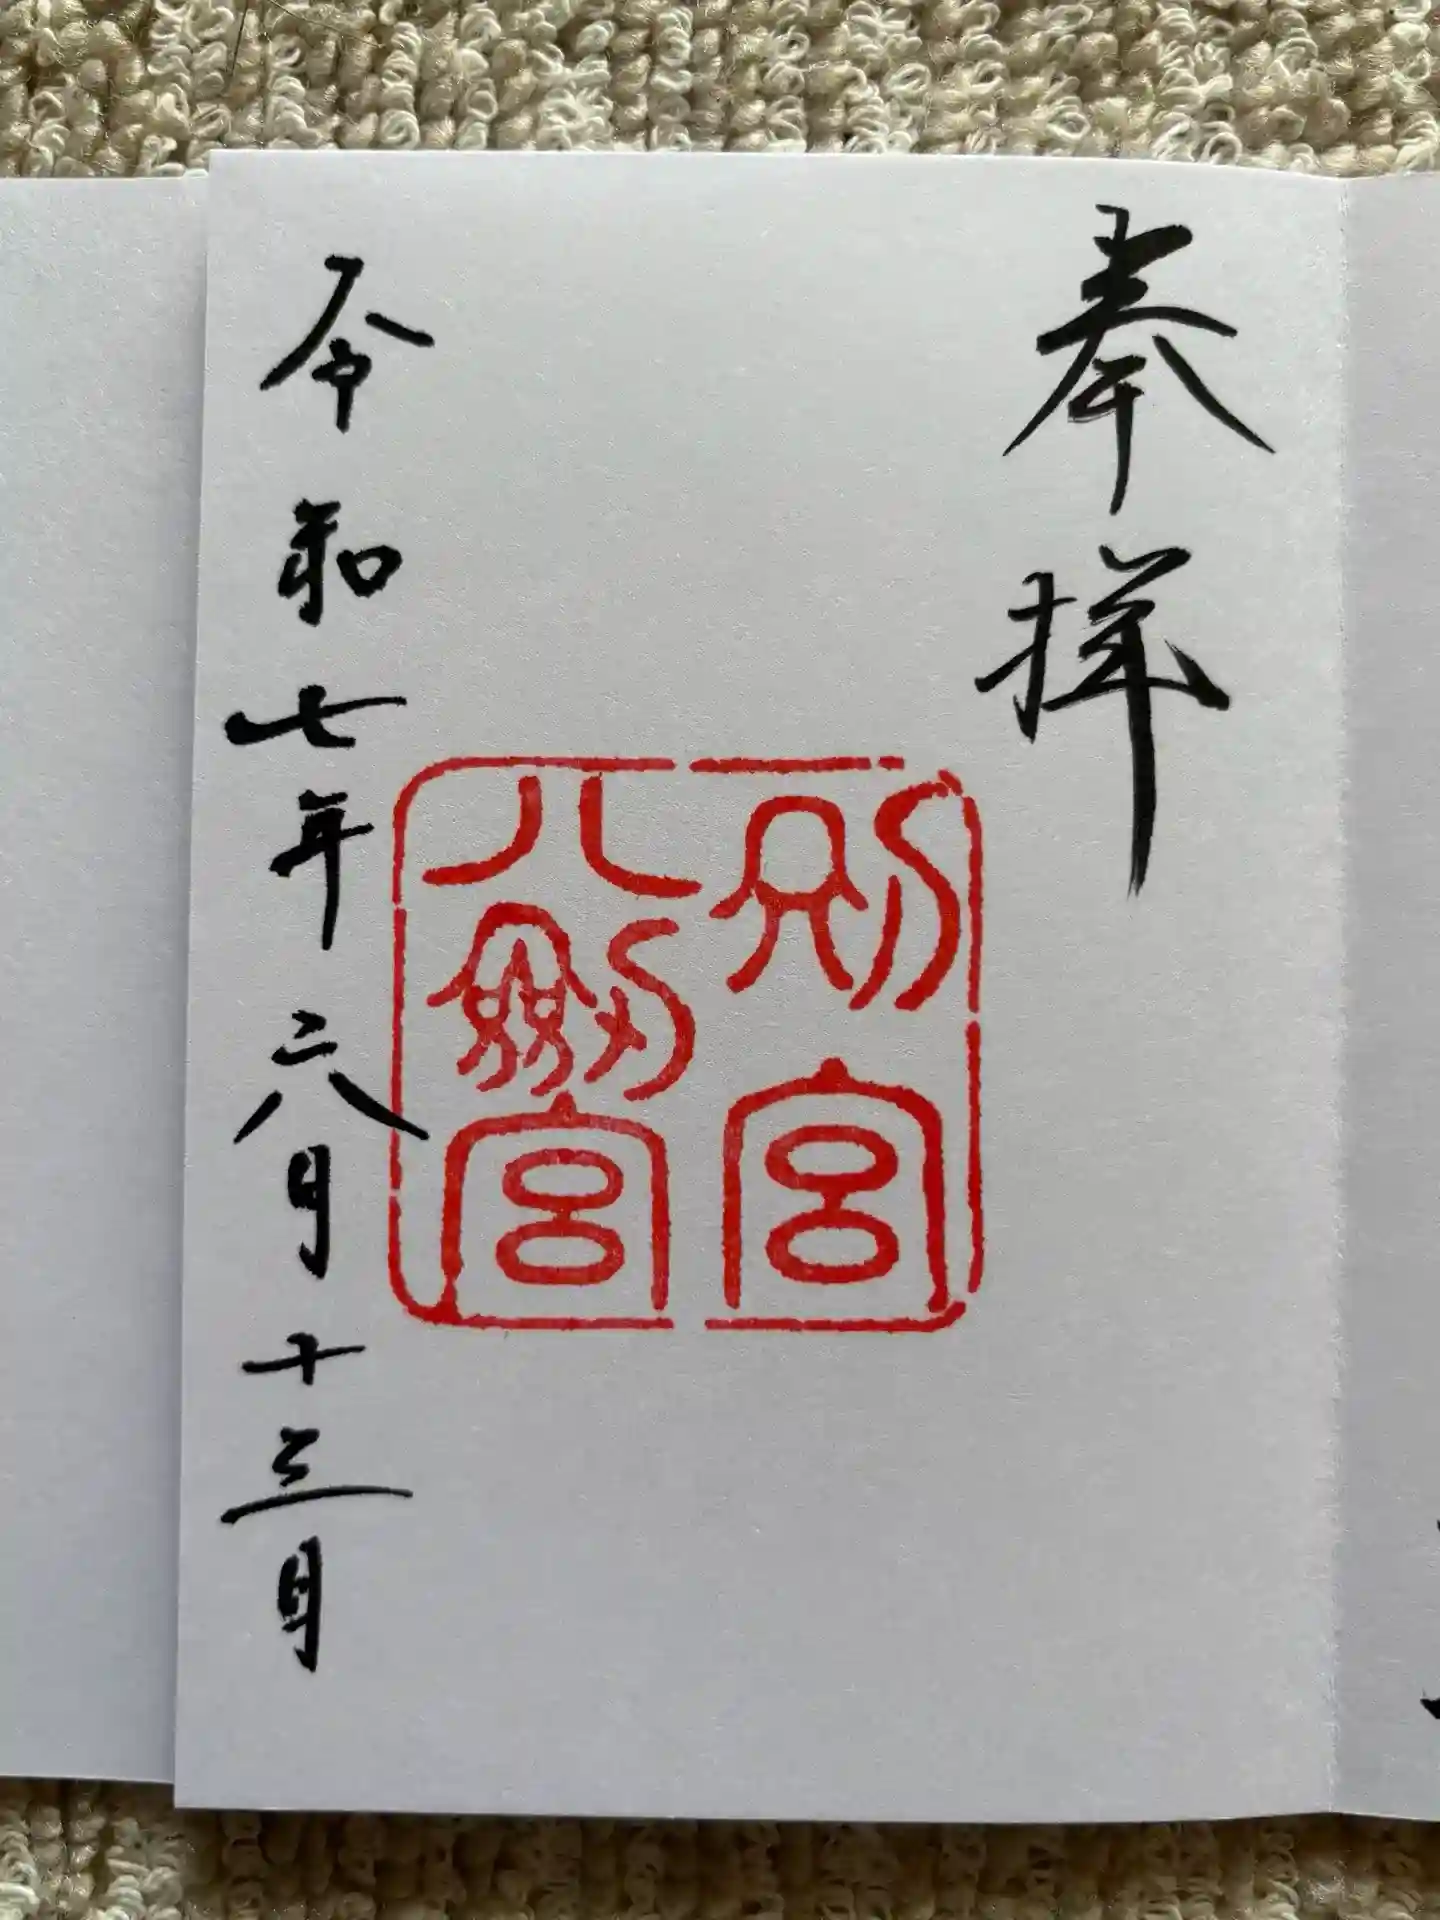 奉拝
別宮
八劔宮
令和七年六月十三日